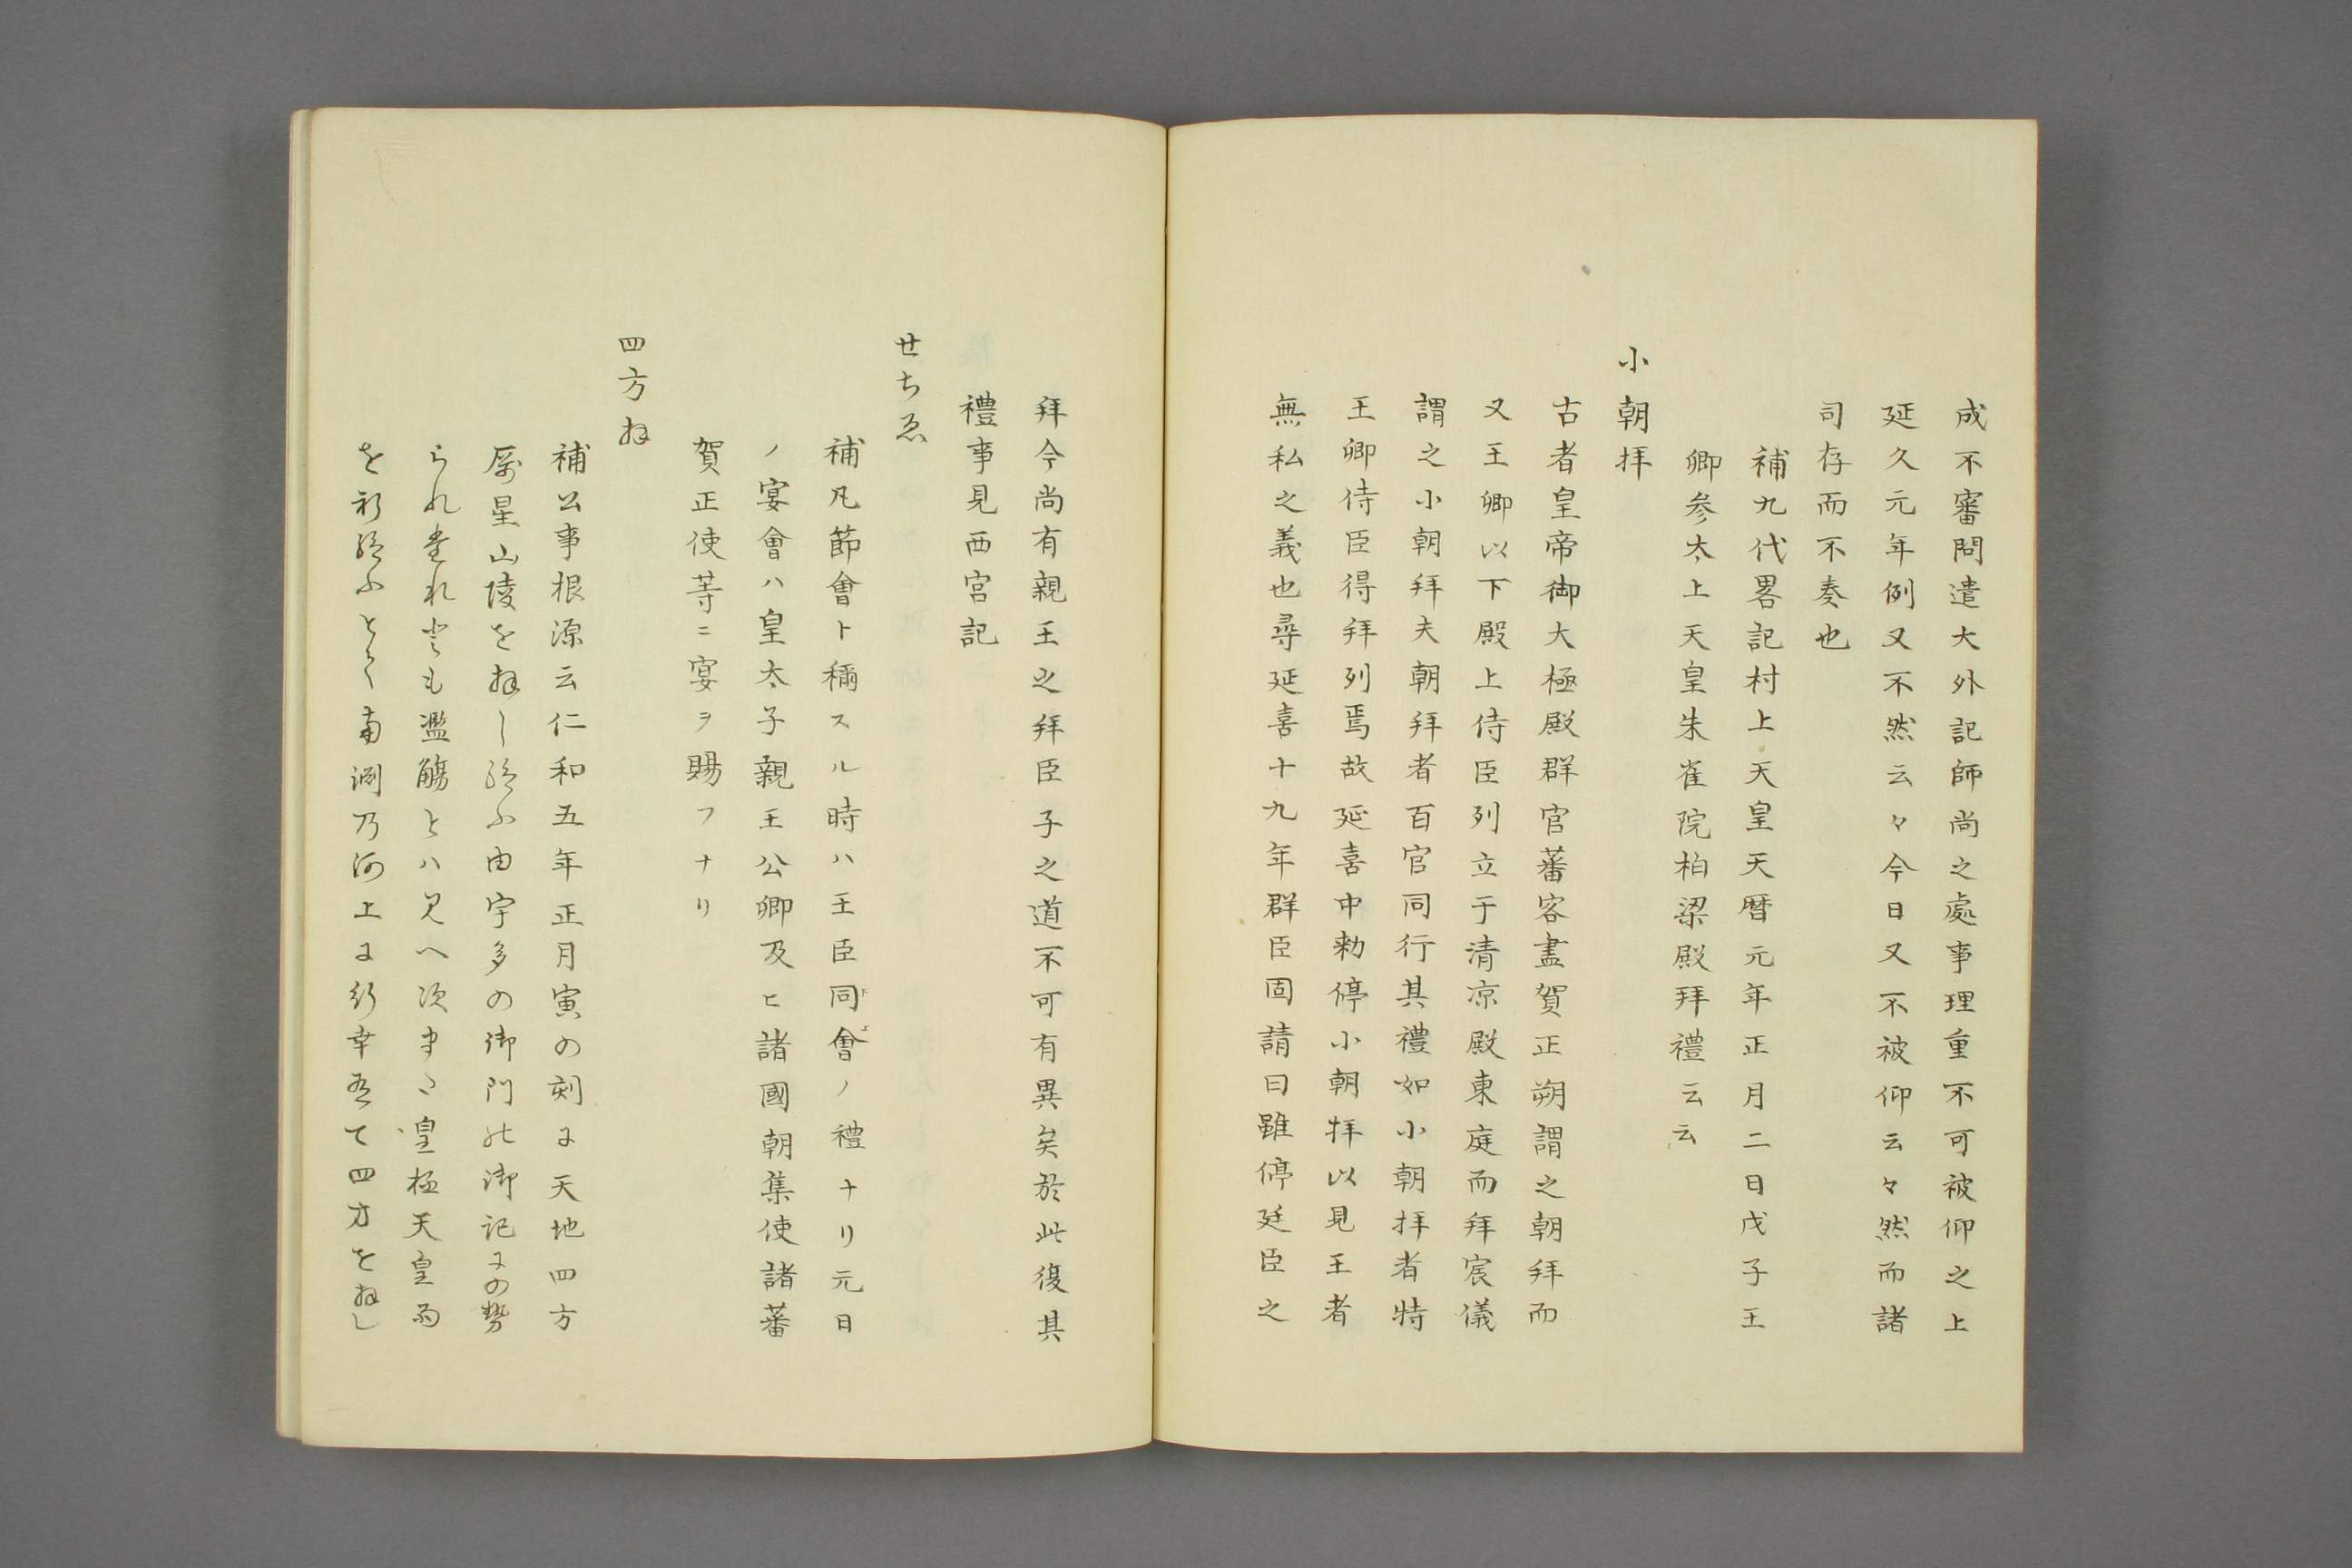 成不審問遣大外記師尚之處事理重不可被仰之上
延久元年例又不然云々今日又不被仰云々然而諸
司存而不奏也
補九代畧記村上天皇天暦元年正月二日戊子王
卿参太上天皇朱雀院柏梁殿拜禮云云
小朝拝
古者皇帝御大極殿群官蕃客盡賀正朔謂之朝拜而
又王卿以下殿上侍臣列立于清凉殿東庭而拜宸儀
謂之小朝拜夫朝拜者百官同行其禮如小朝拝者特
王卿侍臣得拜列焉故延喜中勅停小朝拝以見王者
無私之義也尋延喜十九年群臣固請曰雖停廷臣之
拜今尚有親王之拜臣子之道不可有異矣於此復其
禮事見西宮記
せちゑ
補凡節會ト稱スル時ハ王臣同下會上ノ禮ナリ元日
ノ宴會ハ皇太子親王公卿及ヒ諸國朝集使諸蕃
賀正使等ニ宴ヲ賜フナリ
四方拜
補公事根源云仁和五年正月寅の刻に天地四方
属星山陵を拜し給ふ由宇多の御門の御記にの勢
られ侍れとも濫觴とハ見へ次まつ皇極天皇雨
を祈給ふとて南淵乃河上に行幸有て四方を拜し